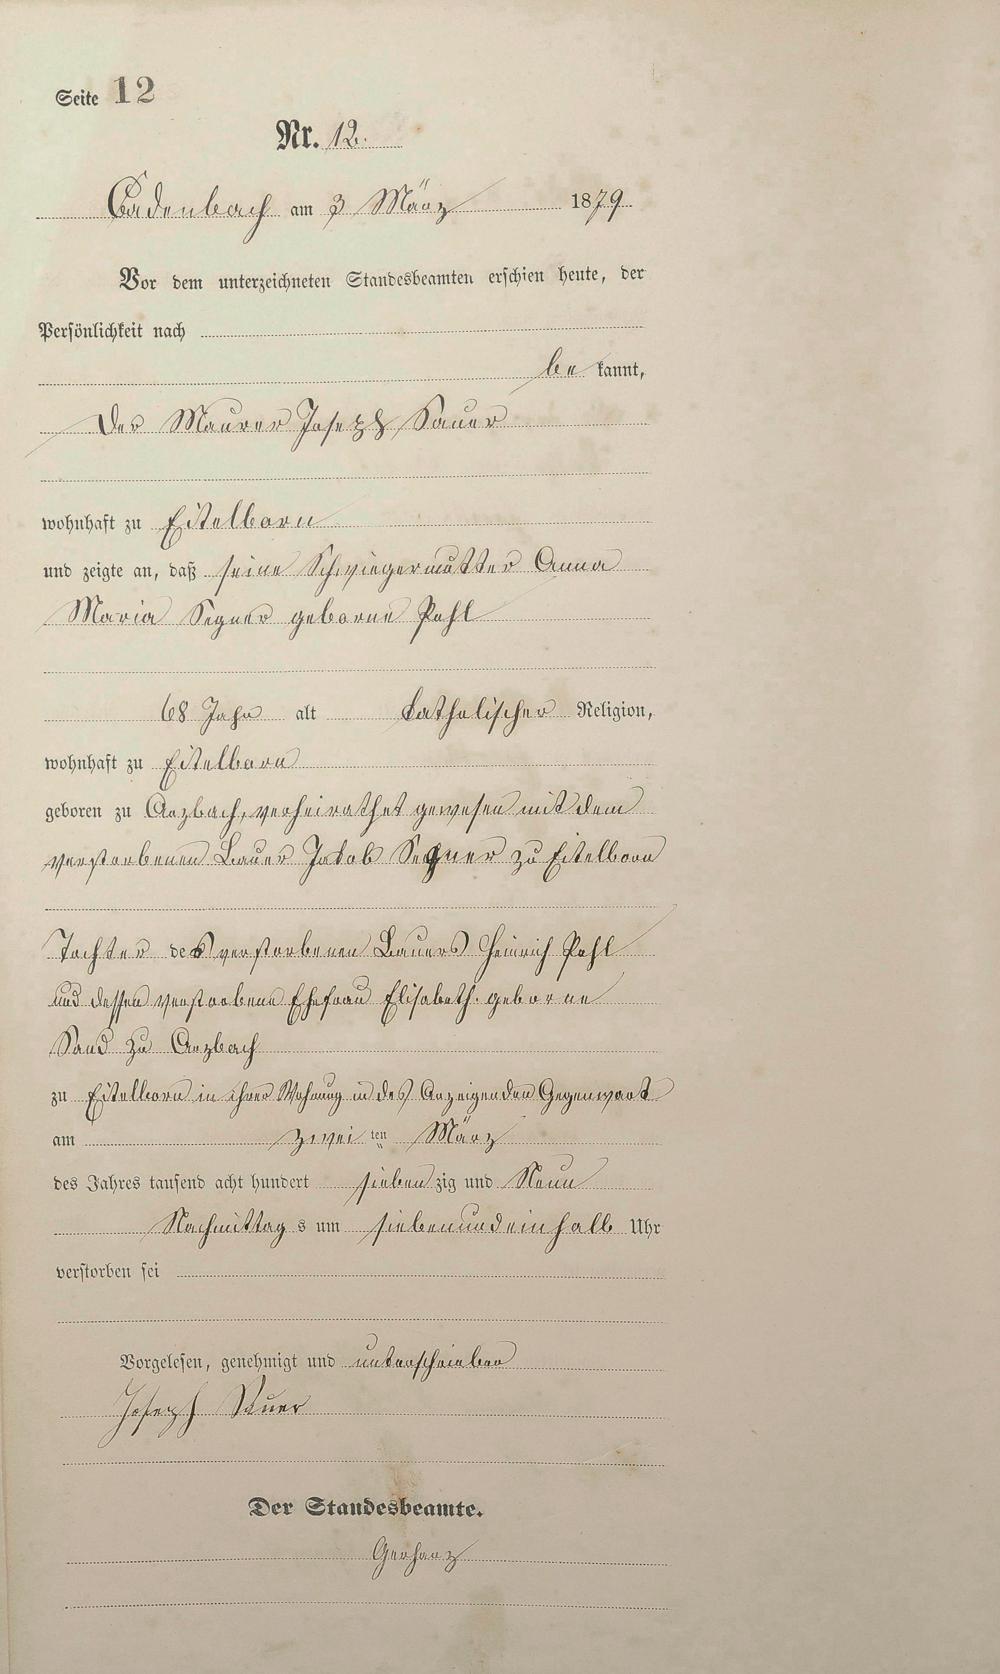 Seite 12
Nr. 12.
Cadenbach am 3 März 1879
Vor dem unterzeichneten Standesbeamten erschien heute, der
Persönlichkeit nach
be kannt,
der Maurer Joseph Sauer
wohnhaft zu Eitelborn
und zeigte an, daß seine Schwiegermutter Anna
Maria Segner geborne Pehl
68 Jahr alt katholischer Religion,
wohnhaft zu Eitelborn
geboren zu Arzbach, verheirathet gewesen mit dem
verstorbenen Bauer Jakob Segner zu Eitelborn
Tochter des verstorbenen Bauers Heinrich Pehl
und dessen verstorbene Ehefrau Elisabeth geborne
Sand zu Arzbach
zu Eitelborn in ihrer Wohnung in des Anzeigenden Gegenwart
am zwei ten März
des Jahres tausend acht hundert sieben zig und Neun
Nachmittag s um siebenundeinhalb Uhr
verstorben sei
Vorgelesen, genehmigt und unterschrieben
Joseph Sauer
Der Standesbeamte.
Gerharz